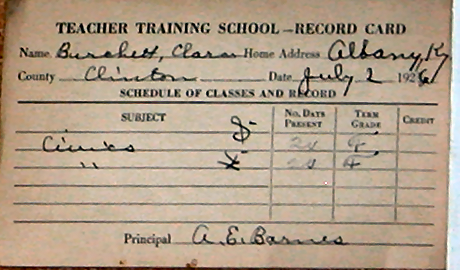 TEACHER TRAINING SCHOOL—RECORD CARD
Name Burchett, Clara Home Address Albany, Ky
County Clinton Date July 2 1926
SCHEDULE OF CLASSES AND RECORD
SUBJECT No. Days Present Term Grade Credit
Civics
" "
Principal A. E. Barnes